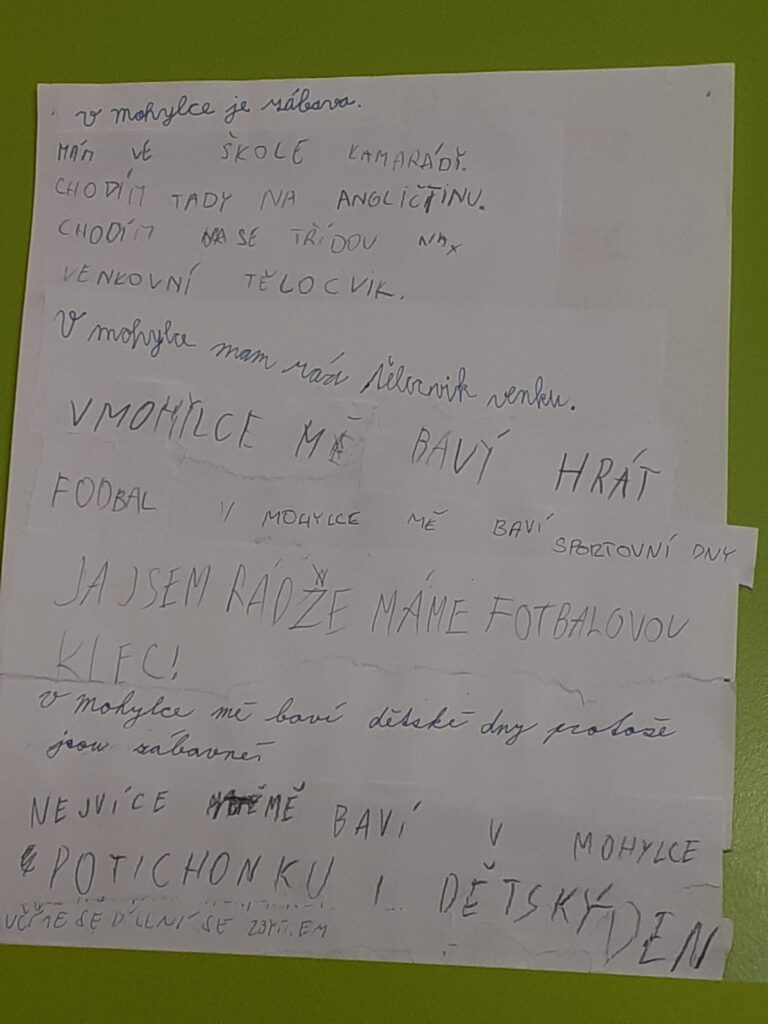 v mohylce je zábava.
MÁM VE ŠKOLE KAMARÁDY.
CHODÍM TADY NA ANGLIČTINU.
CHODÍM SE TŘÍDOU NA
VENKOVNÍ TĚLOCVIK.
V mohylce mam rád tělocvik venku.
V MOHYLCE MĚ BAVÝ HRÁT
FODBAL V MOHYLCE MĚ BAVÍ SPORTOVNÍ DNY
JA JSEM RÁD ŽE MÁME FOTBALOVOU
KLEC!
v mohylce mě baví dětské dny protože
jsou zábavné.
NEJVÍCE MĚ BAVÍ V MOHYLCE
POTICHONKU I DĚTSKÝ DEN
UČÍME SE SE